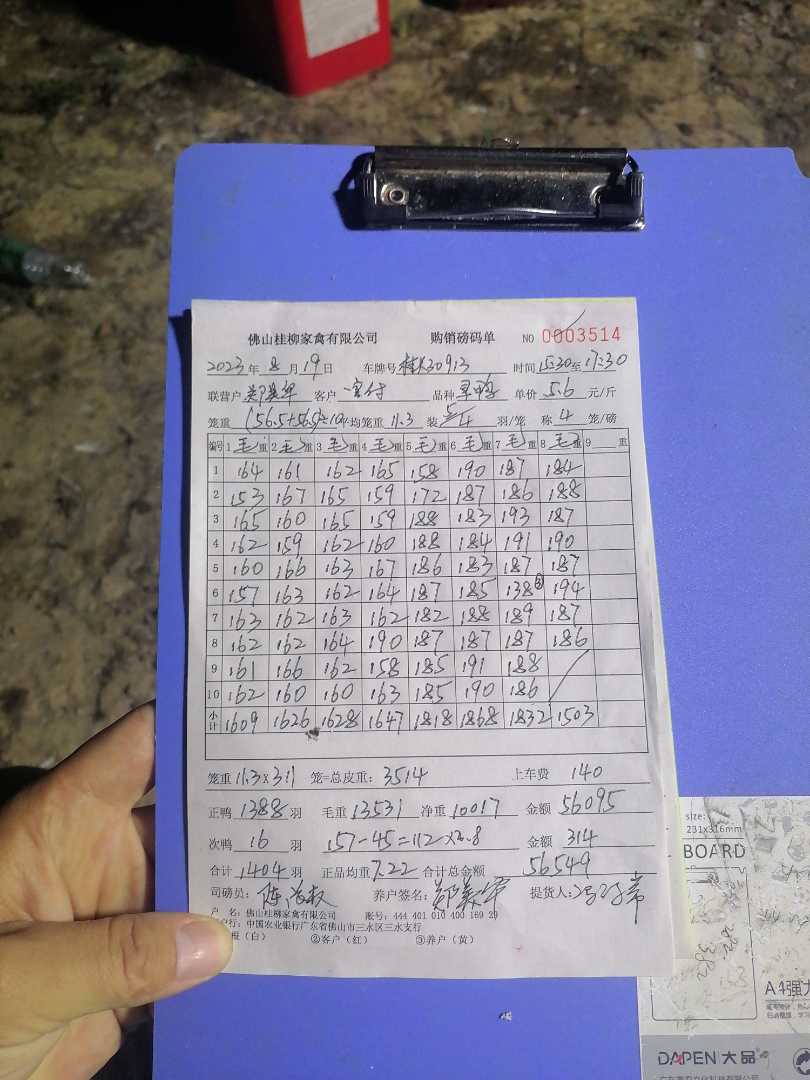 佛山桂柳家禽有限公司 购销磅码单 NO 0003514
2023年8月19日 车牌号 桂K30913 时间 15:30至17:30
联营户 客户 品种 单价 5.6 元/斤
笼重 (56.5+56.5)÷10 平均笼重 11.3 装 5/4 羽/笼 称 4 笼/磅
编号 1 毛重 2 毛重 3 毛重 4 毛重 5 毛重 6 毛重 7 毛重 8 毛重 9 重
1 164 161 162 165 158 190 187 184
2 153 167 165 159 172 187 186 188
3 165 160 165 159 188 183 193 187
4 162 159 162 160 188 184 191 190
5 160 166 163 167 186 183 187 187
6 157 163 162 164 187 185 138③ 194
7 163 162 163 162 182 188 189 187
8 162 162 164 190 187 187 187 186
9 161 166 162 158 185 191 188
10 162 160 160 163 185 190 186
小计 1609 1626 1628 1647 1818 1868 1832 1503
笼重 11.3×311 笼=总皮重: 3514 上车费 140
正鸭 1388 羽 毛重 13531 净重 10017 金额 56095
次鸭 16 羽 157-45=112×2.8 金额 314
合计 1404 羽 正品均重 7.22 合计总金额 56549
司磅员: 养户签名: 提货人:
户 名: 佛山桂柳家禽有限公司 账号: 444 401 010 400 169 29
户行: 中国农业银行广东省佛山市三水区三水支行
(白) ②客户(红) ③养户(黄)
size:
231x316mm
BOARD
A4强
DAPEN 大品